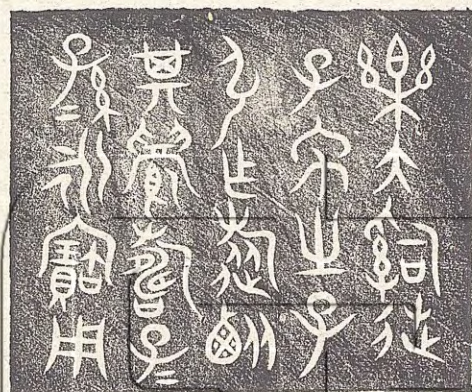 樂大𤔲徒
子之子
引乍旅
其眉壽子=
孫=永寶用